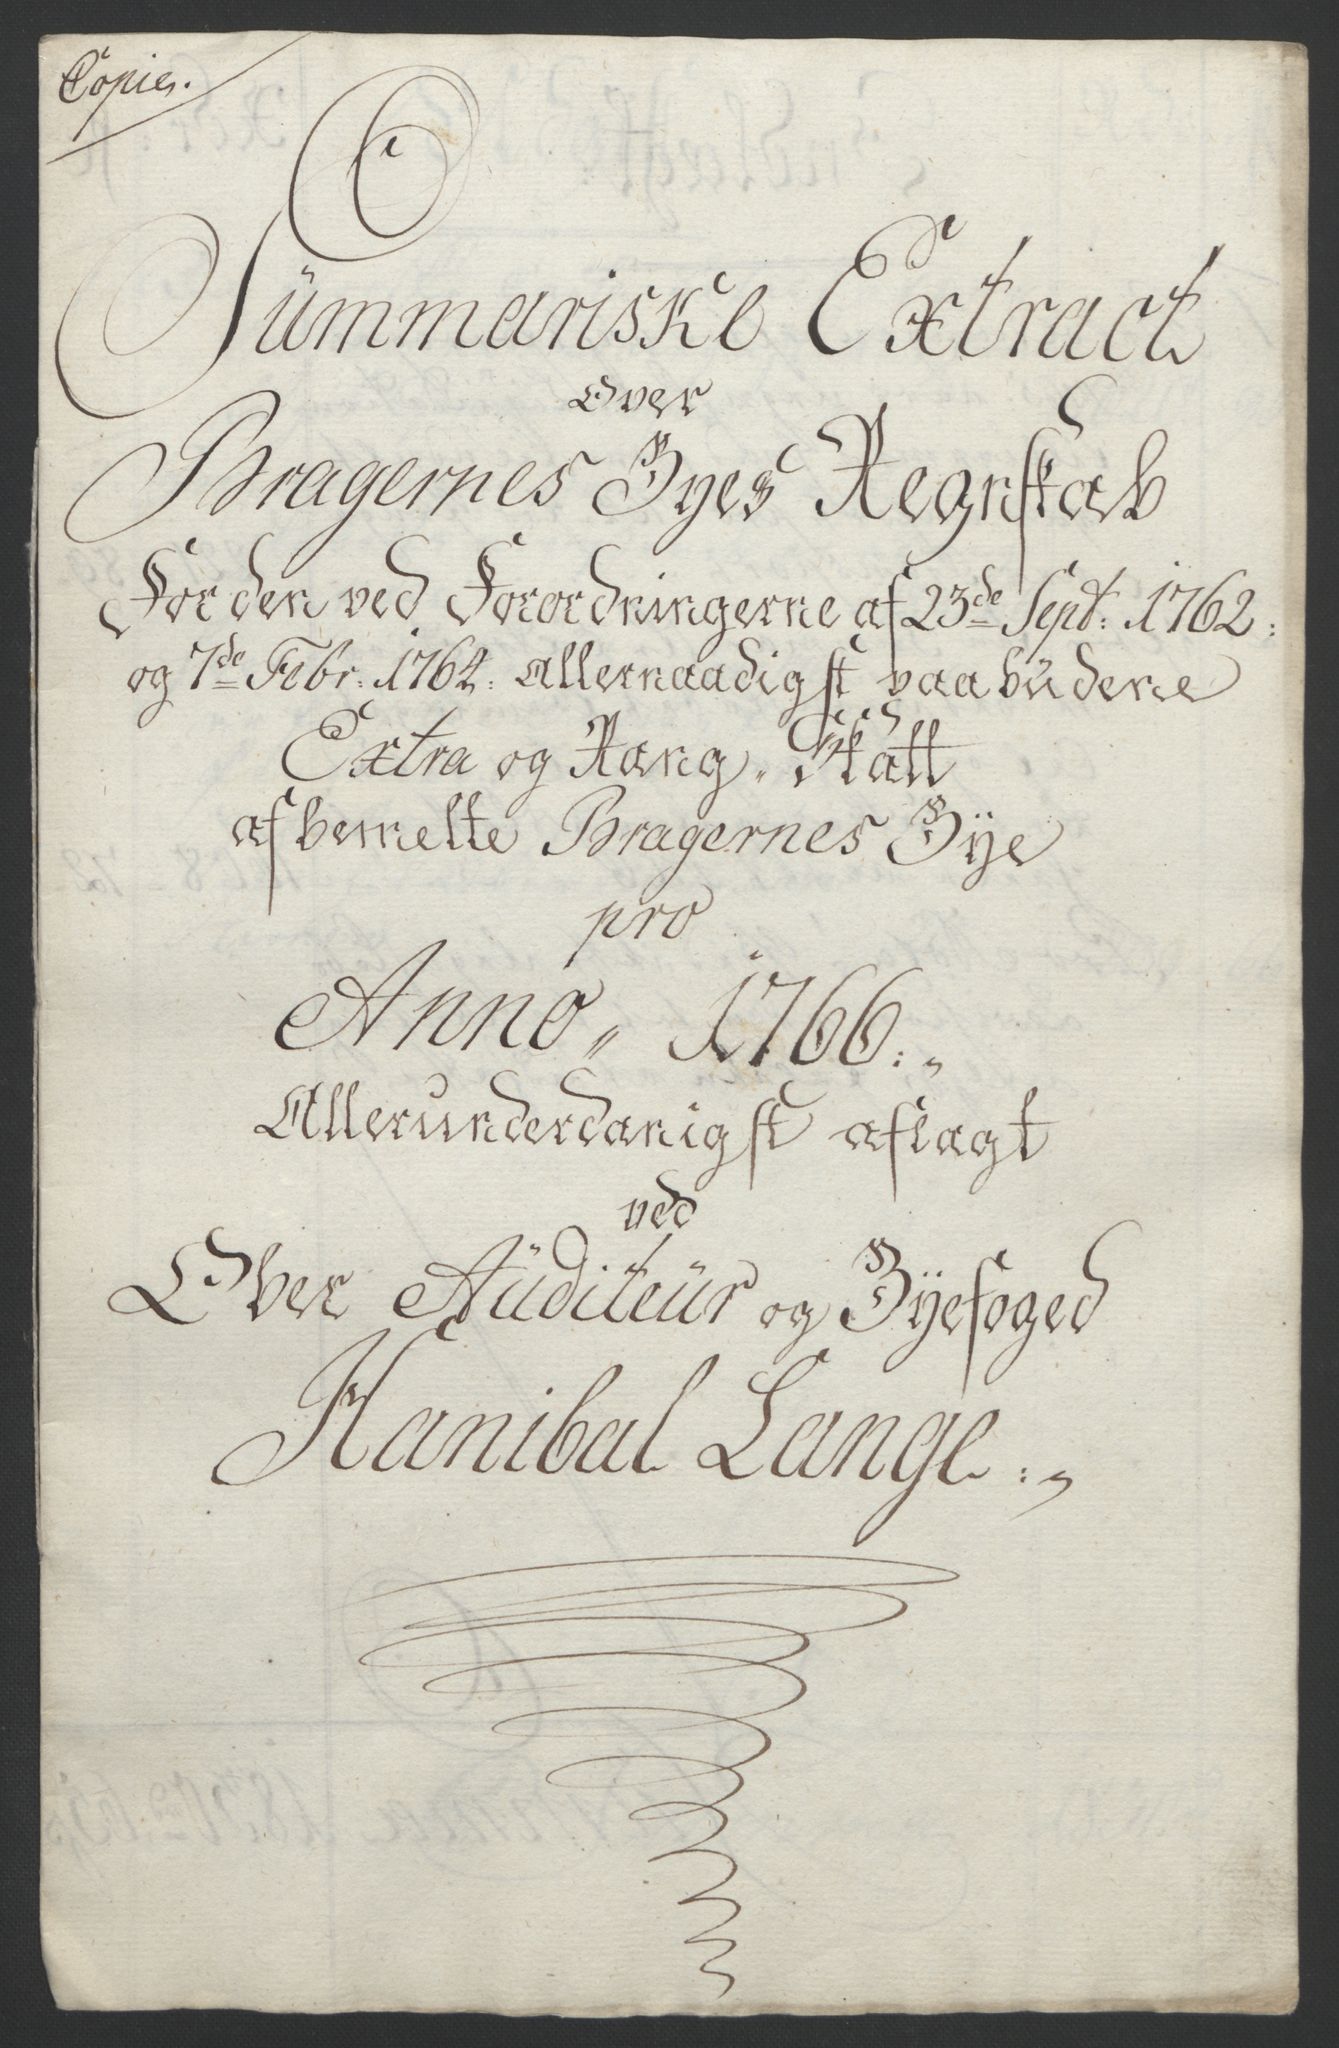 Copie.
Summariske Extract
Over
Bragernes Byes Regnskab
For den ved Forordningerne af 23de Sept: 1762:
og 7de Febr: 1764: Allernaadigst paabüdene
Extra og Rang-Skatt
af bemelte Bragernes Bÿe
pro
Anno 1766
Allerunderdanigst aflagt
ved
Over Aüditeür og Bÿefoged
Hanibal Lange